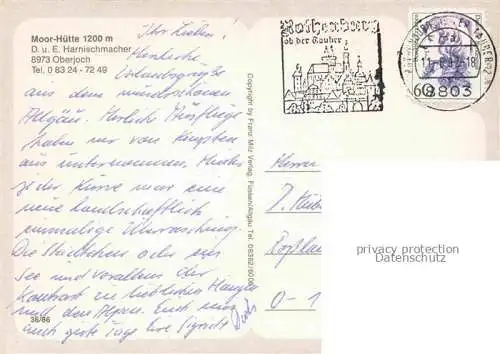 Moor-Hütte 1200 m
D. u. E. Harnischmacher
8973 Oberjoch
Tel. 0 83 24 - 72 49
Ihr Lieben!
Herzliche
Urlaubsgrüße
aus dem wunderschönen
Allgäu. Herrliche Ausflüge
haben wir von Kempten
aus unternommen. Hinter
jeder Kurve war eine
neue landschaftlich
einmalige Überraschung.
Die Städtchen oder ein
See und vor allem der
Kontrast zu lieblichen Hängen
und den Alpen. Euch
auch gute Tage Eure Sigrid
36/86
Copyright by Franz Milz Verlag, Füssen/Allgäu Tel. 08362/60
Rothenburg
ob der Tauber
60
8803
Herrn
Roßlau
O-1
privacy protection
Datenschutz